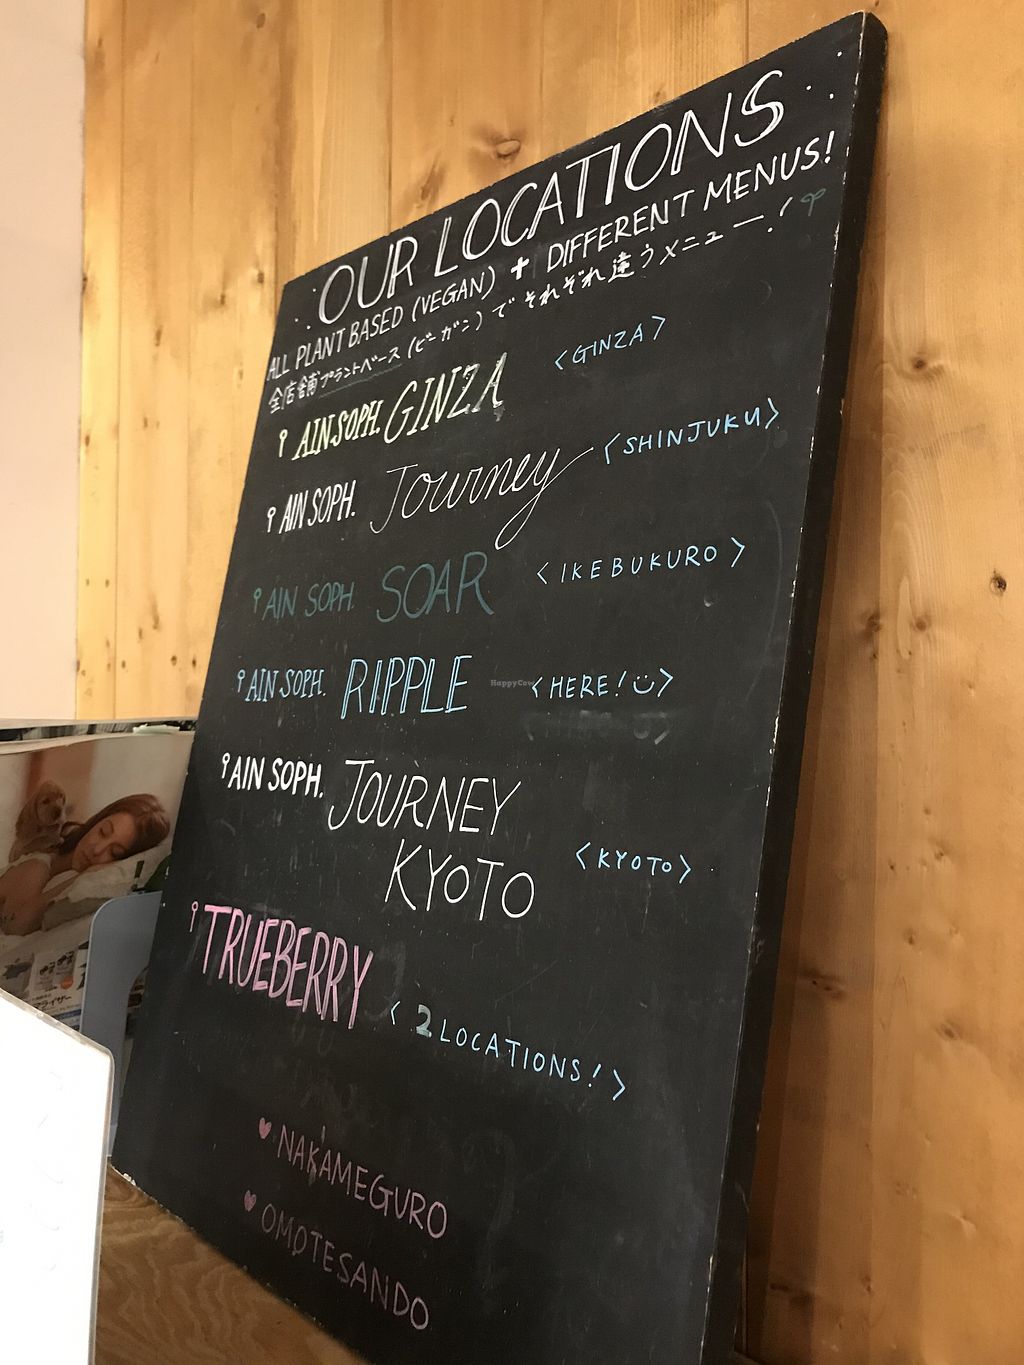 OUR LOCATIONS
ALL PLANT BASED (VEGAN) + DIFFERENT MENUS!
全店舗プラントベース(ビーガン)でそれぞれ違うメニュー!
AIN SOPH. GINZA <GINZA>
AIN SOPH. Journey <SHINJUKU>
AIN SOPH. SOAR <IKEBUKURO>
AIN SOPH. RIPPLE <HERE!>
HappyCow
AIN SOPH. JOURNEY
KYOTO <KYOTO>
TRUEBERRY <2 LOCATIONS!>
♥ NAKAMEGURO
♥ OMOTESANDO